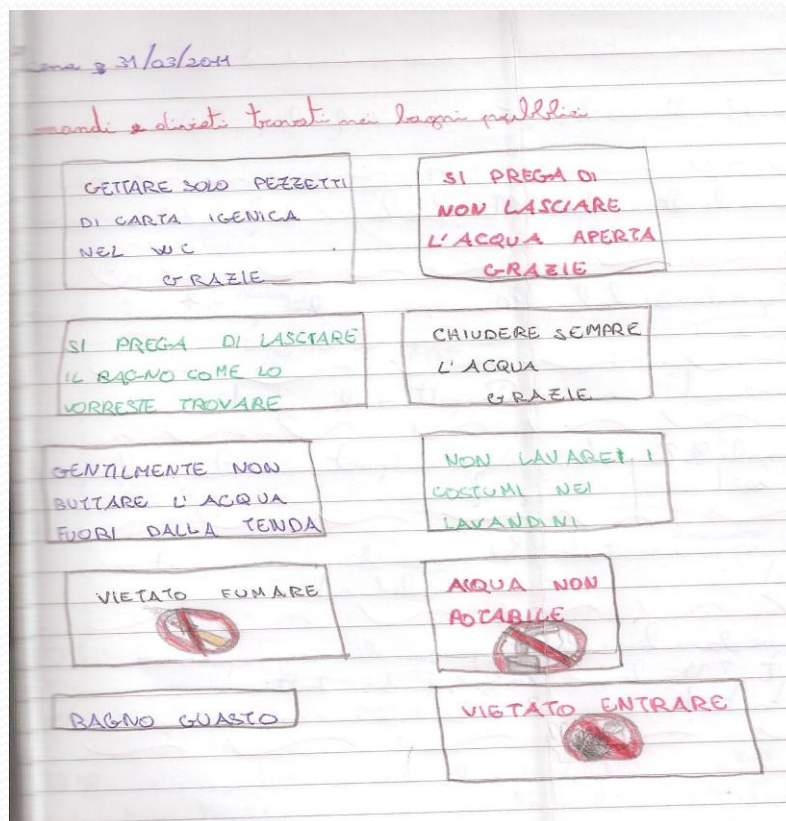 31/03/2011
mandi e divieti trovati nei bagni pubblici
GETTARE SOLO PEZZETTI
DI CARTA IGENICA
NEL WC
GRAZIE
SI PREGA DI
NON LASCIARE
L'ACQUA APERTA
GRAZIE
SI PREGA DI LASCIARE
IL BAGNO COME LO
VORRESTE TROVARE
CHIUDERE SEMPRE
L'ACQUA
GRAZIE
GENTILMENTE NON
BUTTARE L'ACQUA
FUORI DALLA TENDA
NON LAVARE I
COSTUMI NEI
LAVANDINI
VIETATO FUMARE
ACQUA NON
POTABILE
BAGNO GUASTO
VIETATO ENTRARE